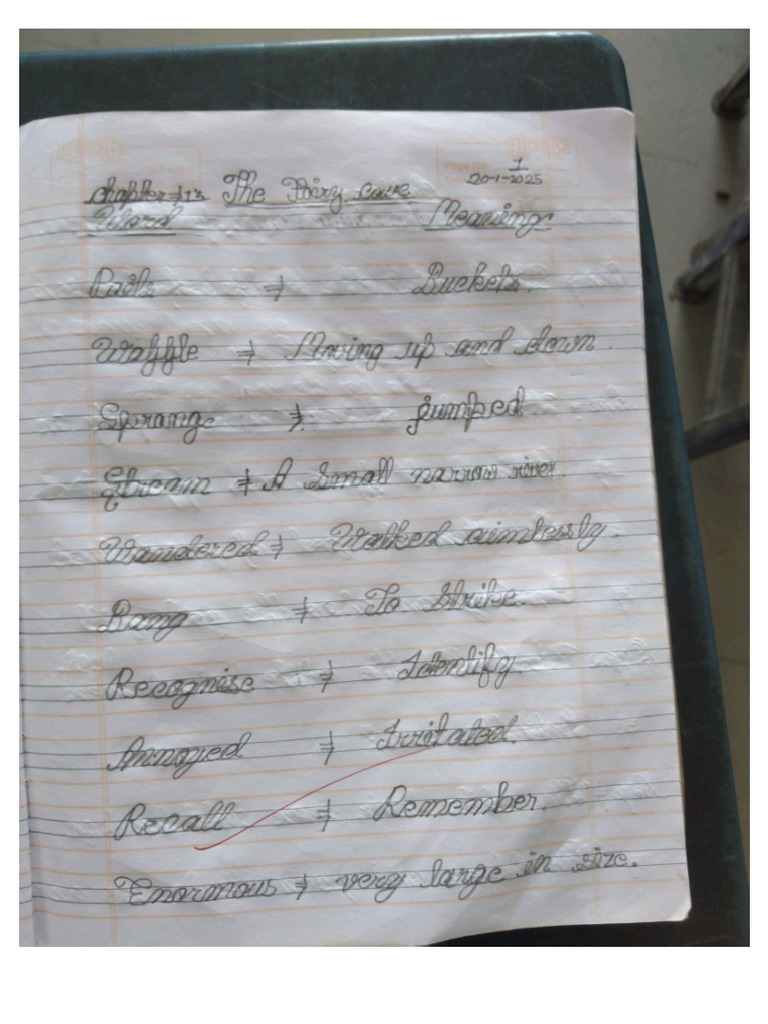 1
20-1-2025
Chapter⇒13 The Fairy cave
Word Meaning
Pails ⇒ Buckets.
Waffle ⇒ Moving up and down.
Sprang ⇒ jumped.
Stream ⇒ A Small narrow river.
Wandered ⇒ Walked aimlessly.
Bang ⇒ To Strike.
Recognise ⇒ Identify.
Annoyed ⇒ Irritated.
Recall ⇒ Remember.
Enormous ⇒ very large in size.